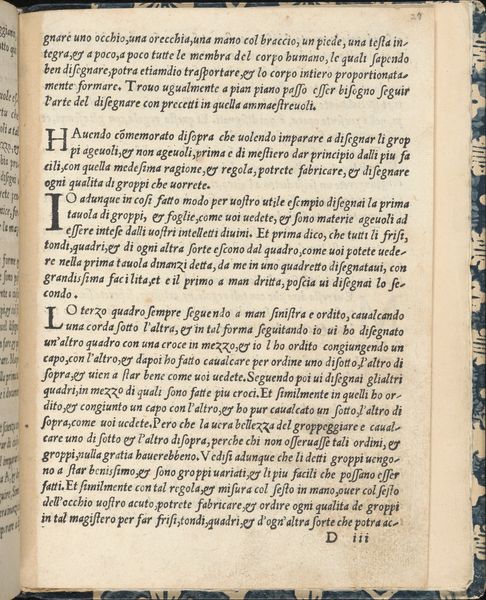 27
gnare uno occhio, una orecchia, una mano col braccio, un piede, una testa in-
tegra, & a poco, a poco tutte le membra del corpo humano, le quali sapendo
ben disegnare, potra etiamdio trasportare, & lo corpo intiero proportionata-
mente formare. Trovo ugualmente a pian piano passo esser bisogno seguir
l'arte del disegnare con precetti in quella ammaestreuoli.
HAuendo cōmemorato disopra che uolendo imparare a disegnar li grop
pi ageuoli, & non ageuoli, prima e di mestiero dar principio dalli piu fa
cili, con quella medesima ragione, & regola, potrete fabricare, & disegnare
ogni qualita di groppi che uorrete.
IO adunque in cosi fatto modo per uostro utile esempio disegnai la prima
tauola di groppi, & foglie, come uoi uedete, & sono materie ageuoli ad
essere intese dalli uostri intelletti diuini. Et prima dico, che tutti li frisi,
tondi, quadri, & di ogni altra sorte escono dal quadro, come uoi potete uede-
re nella prima tauola dinanzi detta, da me in uno quadretto disegnataui, con
grandissima facilita, et e il primo a man dritta, poscia ui disegnai lo se-
condo.
LO terzo quadro sempre seguendo a man sinistra e ordito, caualcando
una corda sotto l'altra, & in tal forma seguitando io ui ho disegnato
un'altro quadro con una croce in mezzo, & io l ho ordito congiungendo un
capo, con l'altro, & dapoi ho fatto caualcare per ordine uno disotto, l'altro di
sopra, & uien a star bene come uoi uedete. Seguendo poi ui disegnai gli altri
quadri, in mezzo di quali sono fatte piu croci. Et similmente in quelli ho or-
dito, & congiunto un capo con l'altro, & ho pur caualcato un sotto, l'altro di
sopra, come uoi uedete. Pero che la uera bellezza del groppeggiare e caual-
care uno di sotto & l'altro disopra, perche chi non osseruasse tali ordini, &
groppi, nulla gratia hauerebbeno. Vedisi adunque che li detti groppi uengo-
no a star benissimo, & sono groppi uariati, & li piu facili che possano esser
fatti. Et similmente con tal regola, & misura col sesto in mano, ouer col sesto
dell'occhio uostro acuto, potrete fabricare, & ordire ogni qualita de groppi
in tal magistero per far frisi, tondi, quadri, & d'ogn'altra sorte che potra ac-
D iii